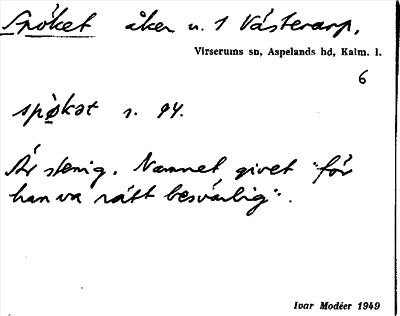 Spöket åker u. 1 Västerarp,
Virserums sn, Aspelands hd, Kalm. l.
6
spø̀kət s. 94.
Är stenig. Namnet givet "för
han va rätt besvärlig".
Ivar Modéer 1949